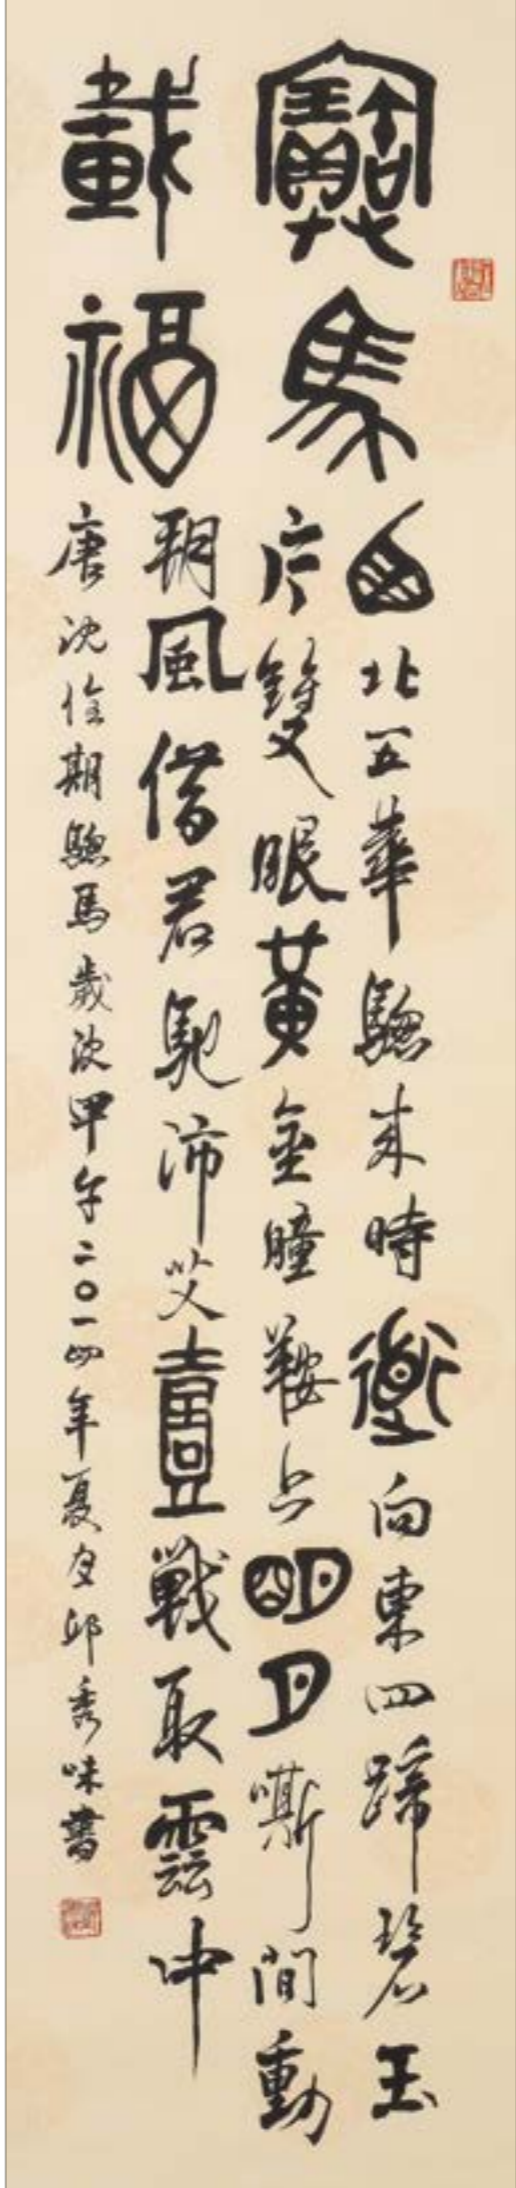 寶馬
載福
西北五華驄来時道向東四蹄碧玉
片雙眼黃金瞳鞍上明月嘶間動
朔風借君馳沛艾壹戰取雲中
唐沈佺期驄馬歲次甲午二〇一四年夏 邱秀味書